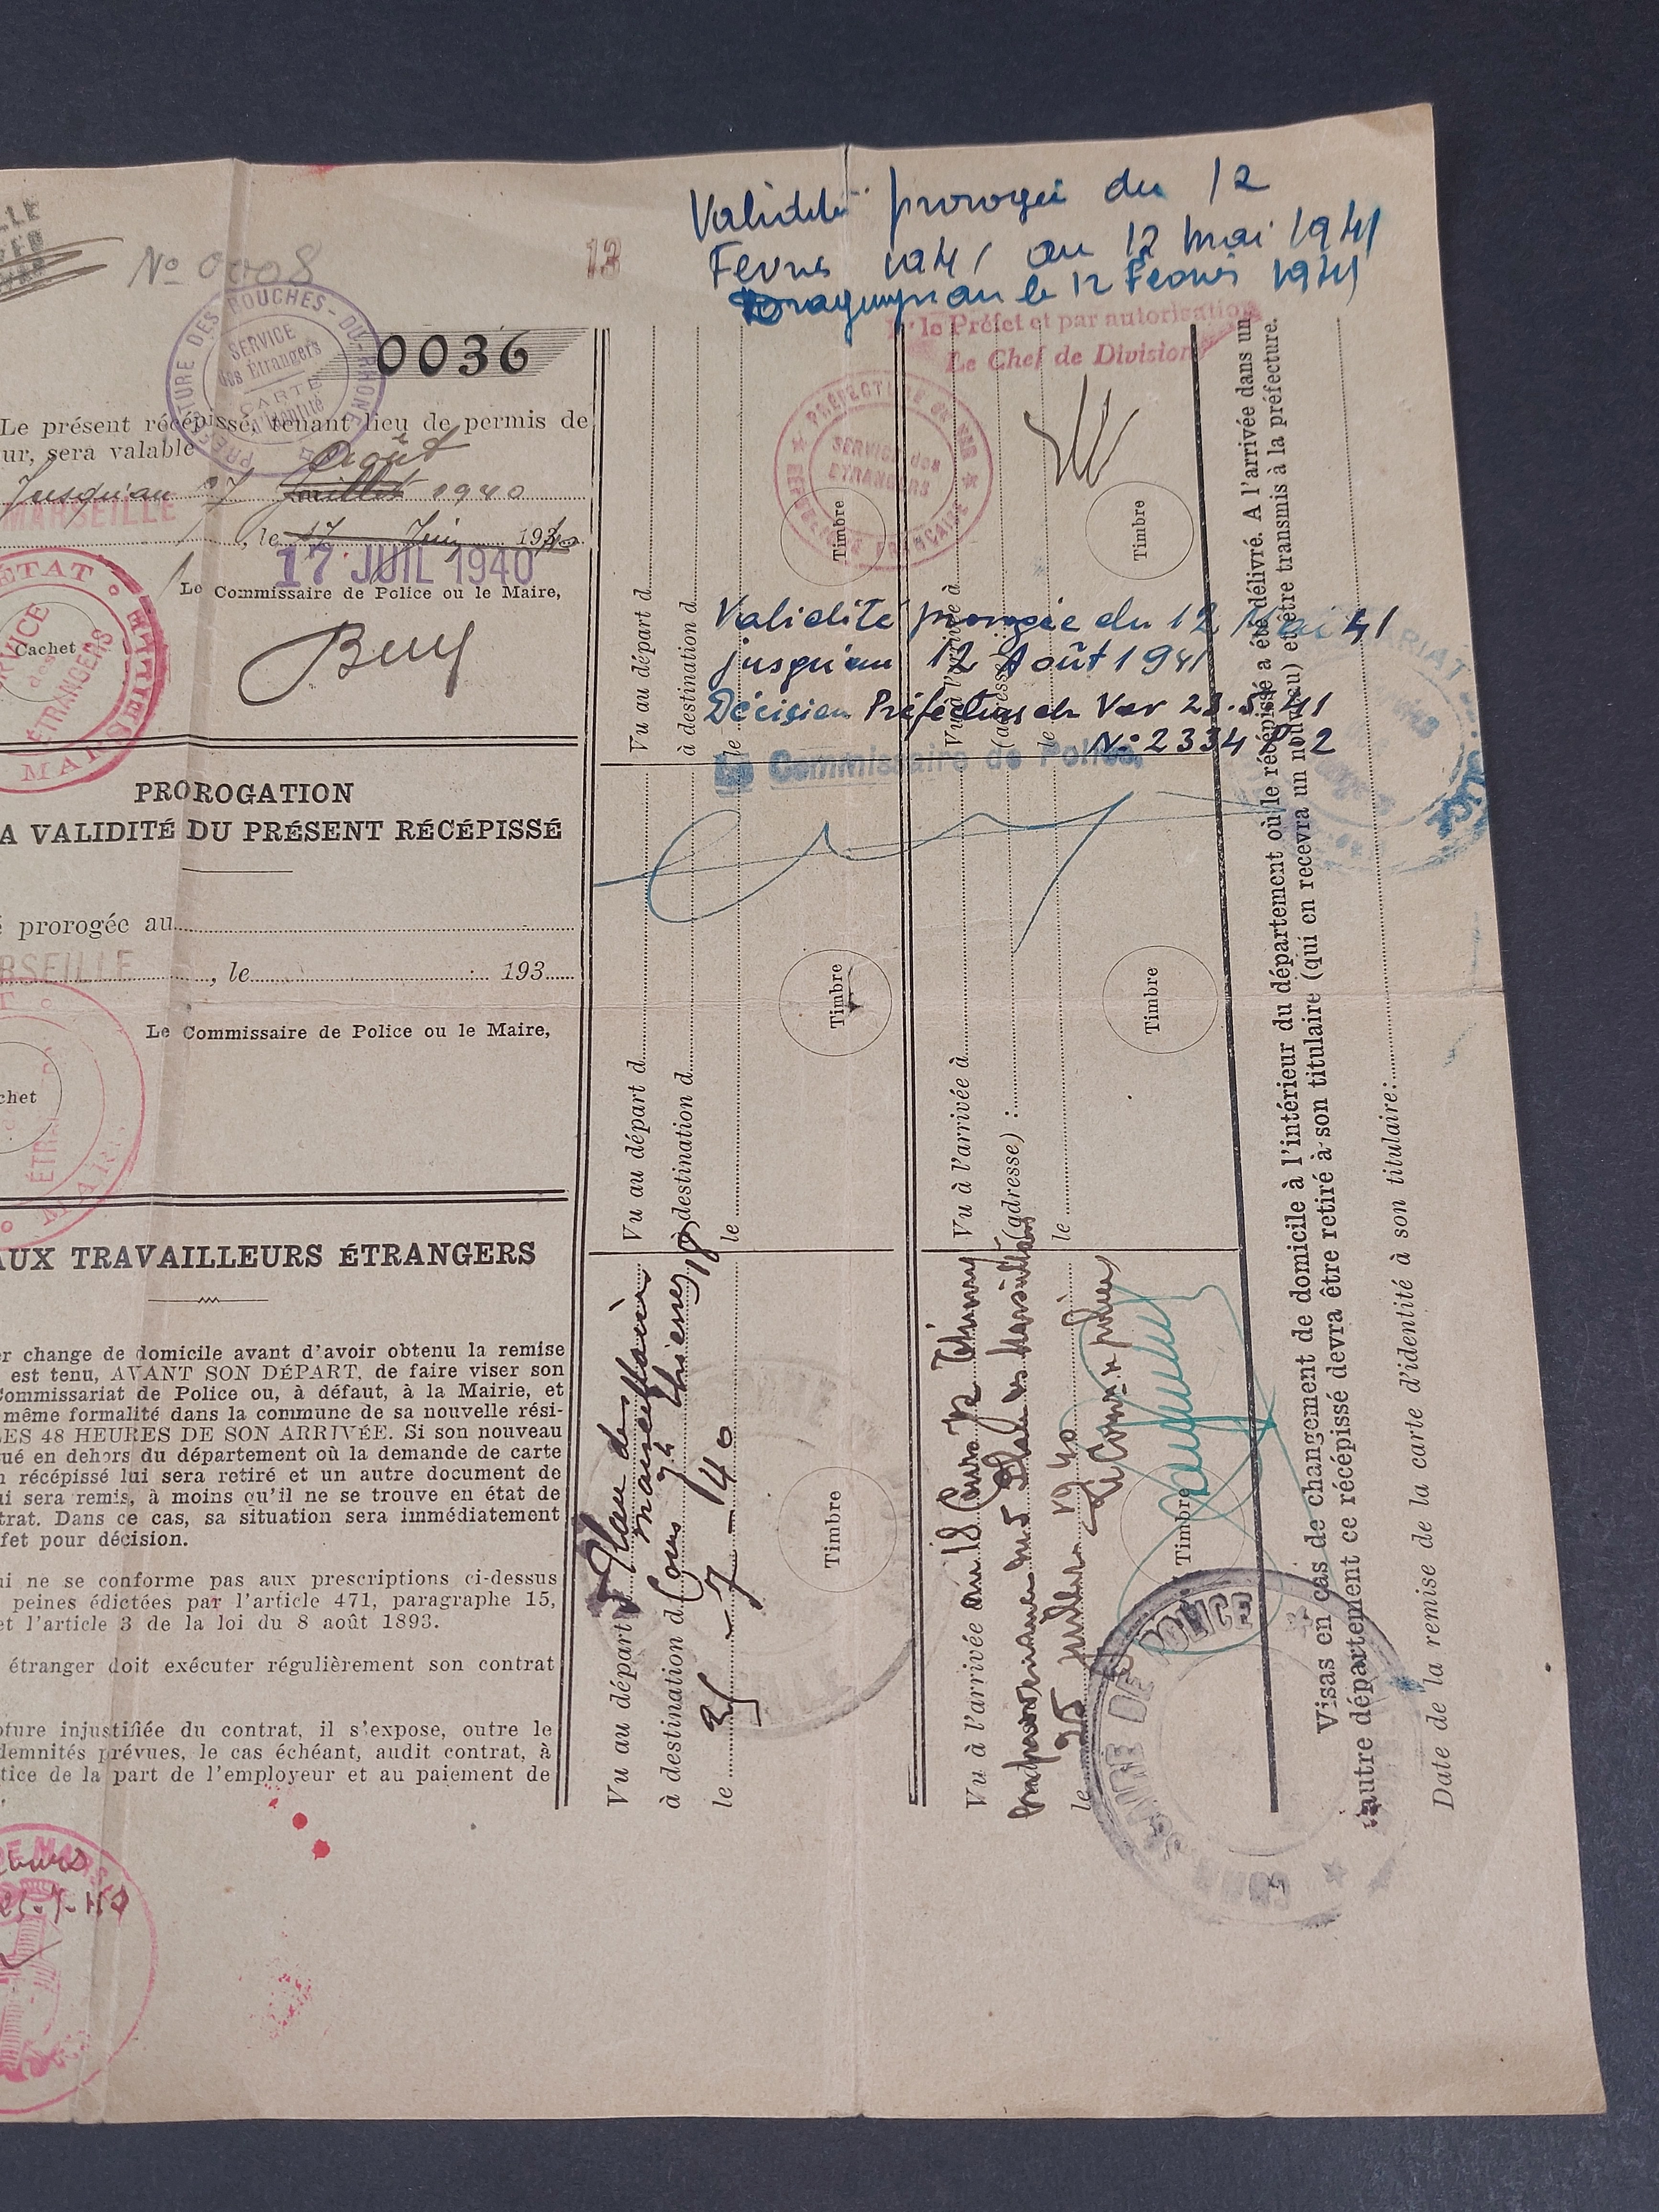 No 0008
13
Validité prorogée du 12
Fevrier 1941 au 12 mai 1941
Draguignan le 12 Fevrier 1941
Pr le Préfet et par autorisation
Le Chef de Division
PRÉFECTURE DU VAR
SERVICE des
ETRANGERS
RÉPUBLIQUE FRANÇAISE
PRÉFECTURE DES BOUCHES-DU-RHONE
SERVICE
des Étrangers
CARTE
d'identité
0036
Le présent récépissé, tenant lieu de permis de
ur, sera valable
Août
Jusqu'au 17 Juillet 1940
MARSEILLE
, le 17 Juin 1940
17 JUIL 1940
Le Commissaire de Police ou le Maire,
ÉTAT
SERVICE
des
ÉTRANGERS
Cachet
PROROGATION
A VALIDITÉ DU PRÉSENT RÉCÉPISSÉ
prorogée au
RSEILLE, le 193
Le Commissaire de Police ou le Maire,
chet
AUX TRAVAILLEURS ÉTRANGERS
er change de domicile avant d'avoir obtenu la remise
est tenu, AVANT SON DÉPART, de faire viser son
Commissariat de Police ou, à défaut, à la Mairie, et
même formalité dans la commune de sa nouvelle rési-
LES 48 HEURES DE SON ARRIVÉE. Si son nouveau
ué en dehors du département où la demande de carte
n récépissé lui sera retiré et un autre document de
ui sera remis, à moins qu'il ne se trouve en état de
trat. Dans ce cas, sa situation sera immédiatement
fet pour décision.
ui ne se conforme pas aux prescriptions ci-dessus
peines édictées par l'article 471, paragraphe 15,
et l'article 3 de la loi du 8 août 1893.
étranger doit exécuter régulièrement son contrat
pture injustifiée du contrat, il s'expose, outre le
demnités prévues, le cas échéant, audit contrat, à
tice de la part de l'employeur et au paiement de
Vu au départ d
à destination d
le
Timbre
Vu à l'arrivée à
(adresse) :
le
Timbre
Validité prorogée du 12 Mai 41
jusqu'au 12 Août 1941
Décision Préfecture du Var 23.5.41
No 2334 P 2
Le Commissaire de Police,
Vu au départ d
à destination d
le
Timbre
Vu à l'arrivée à
(adresse) :
le
Timbre
Vu au départ
à destination d Cours Jh Thierry 18
le 25-7-40
Timbre
Vu à l'arrivée au 18 Cours Jh Thierry
le 25 Juillet 1940
Le Commre de police
Timbre
COMMISSAIRE DE POLICE
Visas en cas de changement de domicile à l'intérieur du département où le récépissé a été délivré. A l'arrivée dans un
autre département ce récépissé devra être retiré à son titulaire (qui en recevra un nouveau) et être transmis à la préfecture.
Date de la remise de la carte d'identité à son titulaire: